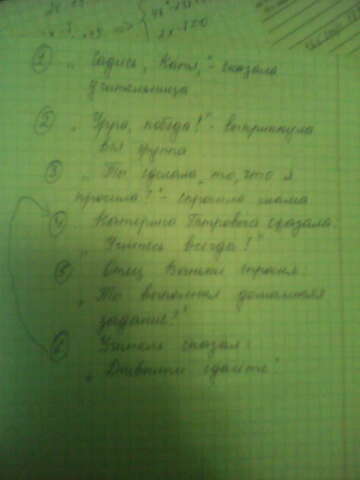 1 „Садись, Катя," - сказала
учительница
2 „Ура, победа!" - выкрикнула
вся группа
3 „Ты сделала то, что я
просила?" - спросила мама
4 Катерина Петровна сказала:
„Учитесь всегда!"
5 Отец спросил:
„Ты выполнил домашнее
задание?"
6 Учитель сказал:
„Дневники сдайте"